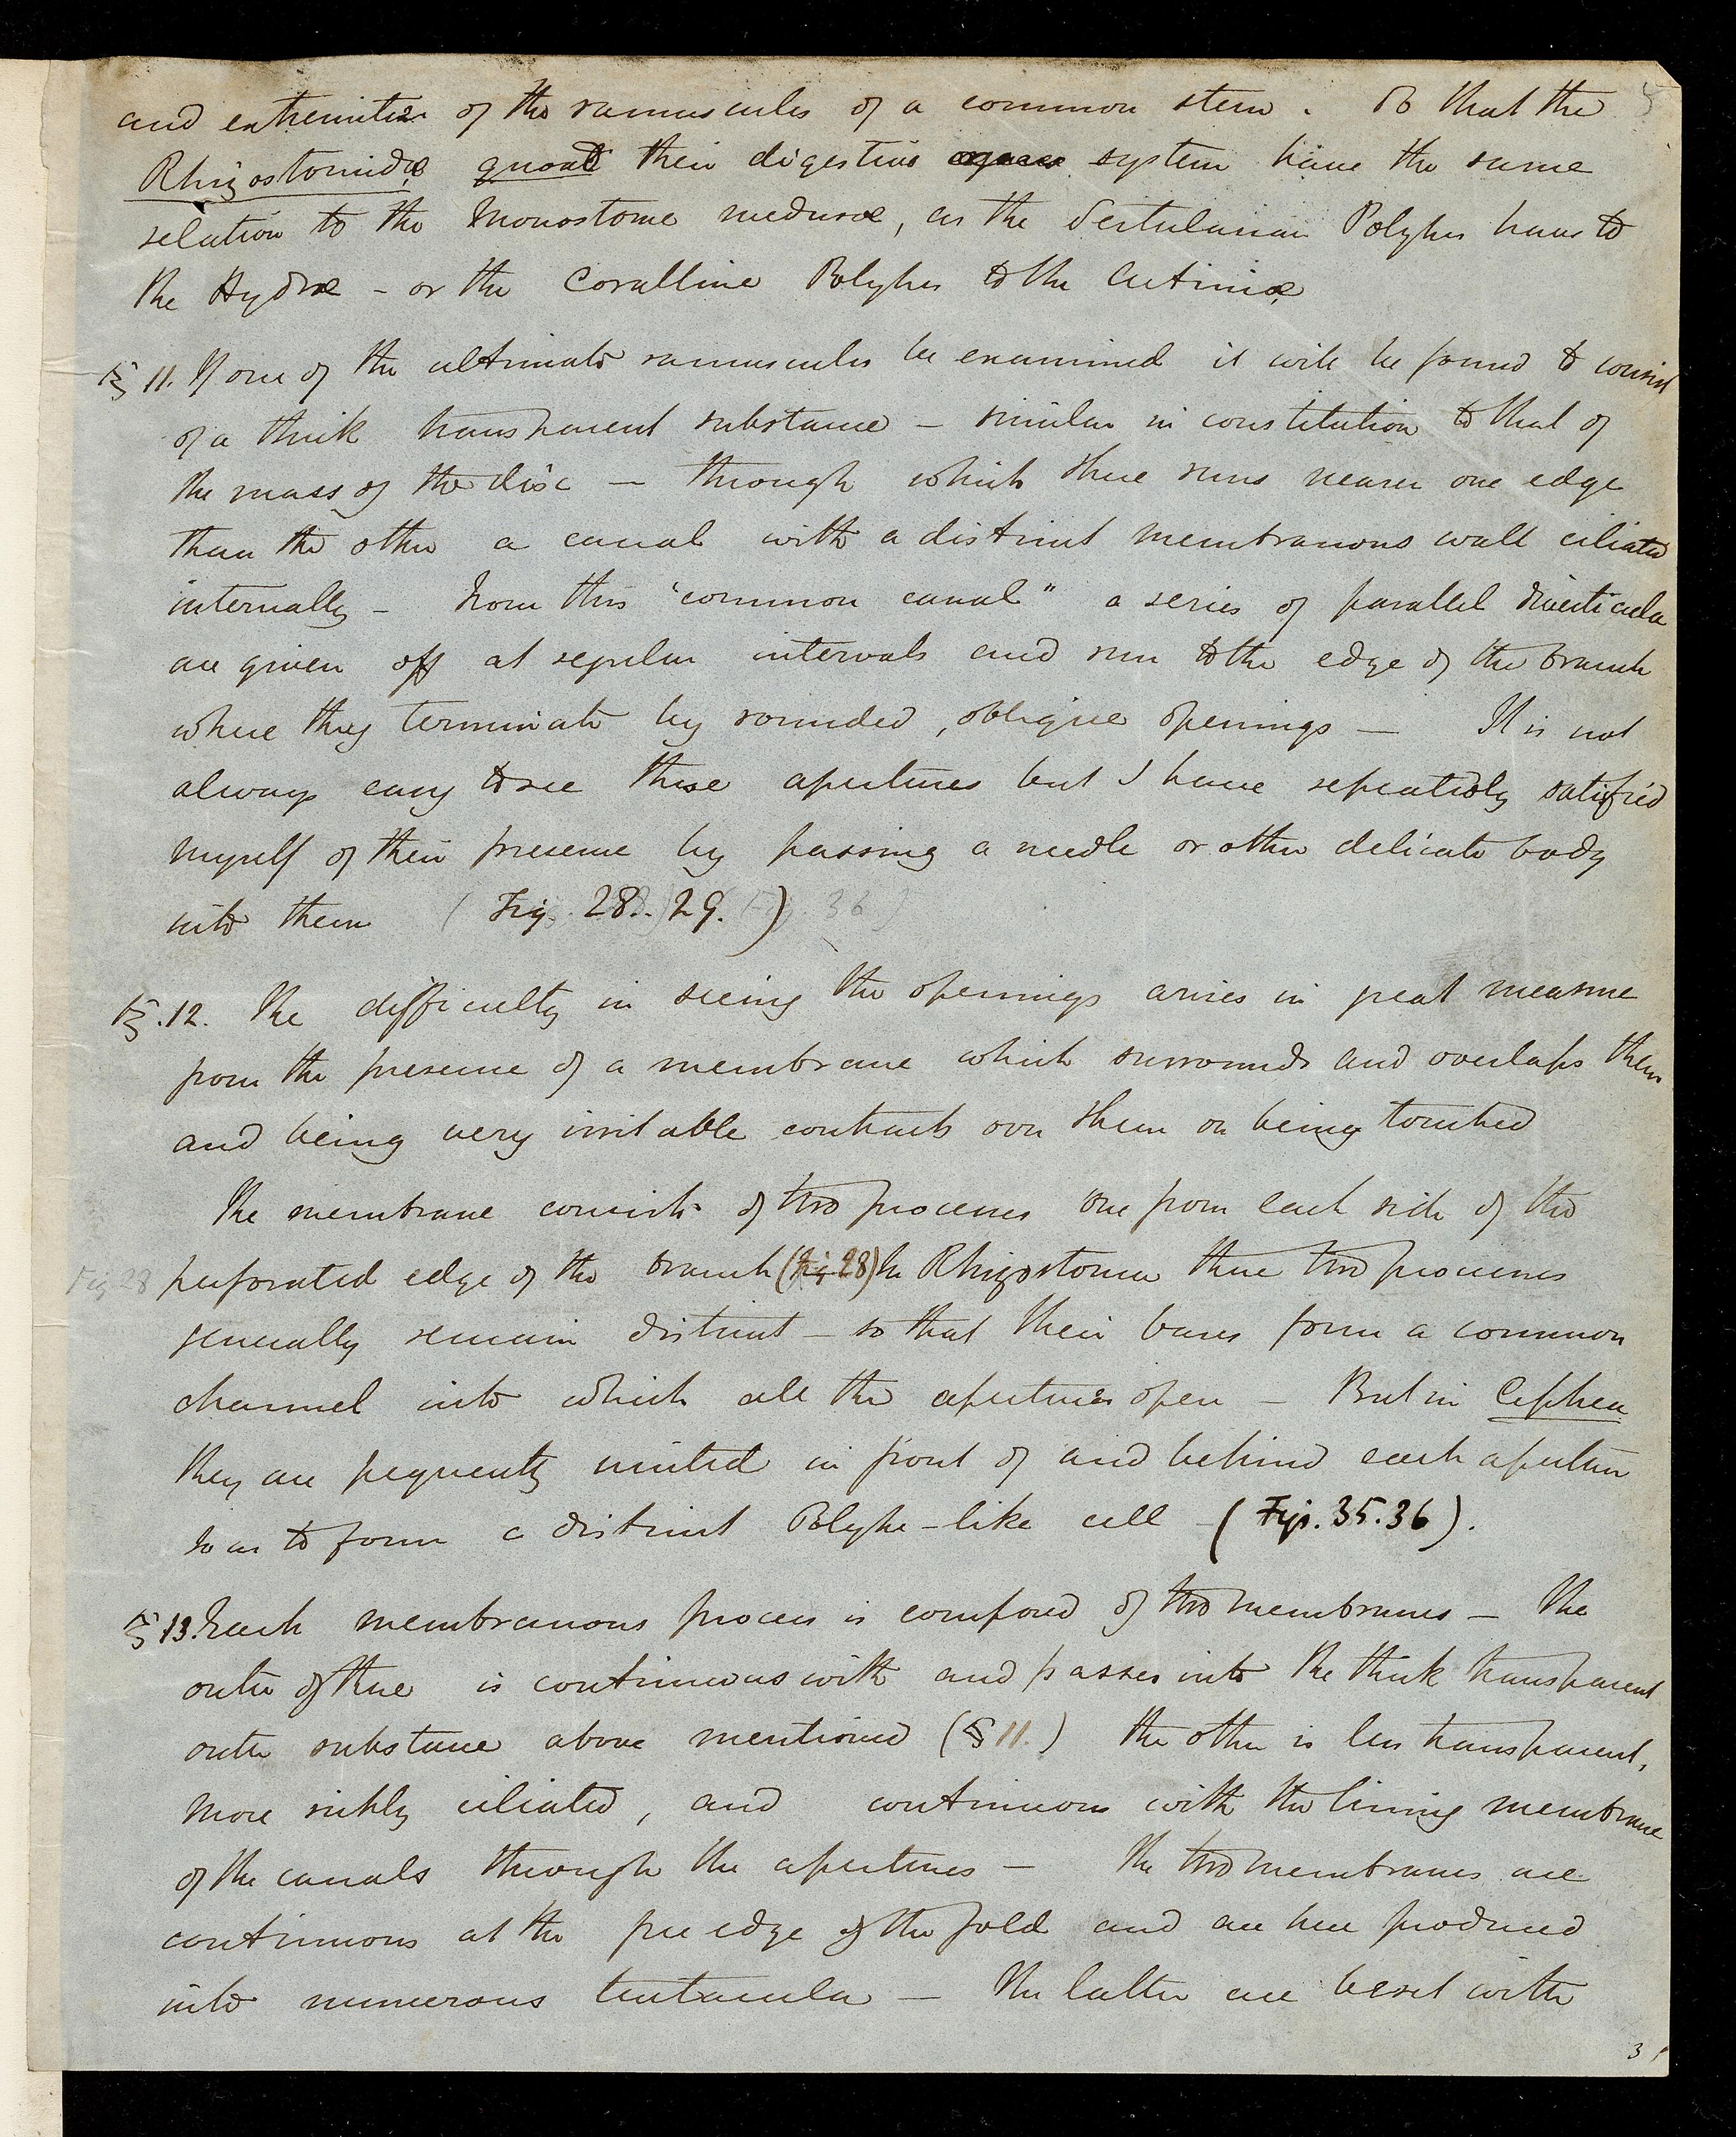 and extremities of the ramuscules of a common stem. So that the 5
Rhizostomidæ quoad their digestive system have the same
relation to the Monostome medusæ, as the Sertularian Polypes have to
the Hydræ - or the Coralline Polypes to the Actiniæ
§ 11. If one of the ultimate ramuscules be examined it will be found to consist
of a thick transparent substance - similar in constitution to that of
the mass of the disc - through which there runs nearer one edge
than the other a canal with a distinct membranous wall ciliated
internally - From this "common canal" a series of parallel diverticula
are given off at regular intervals and run to the edge of the branch
where they terminate by rounded, oblique openings - It is not
always easy to see these apertures but I have repeatedly satisfied
myself of their presence by passing a needle or other delicate body
into them (Fig. 28. 29.) 36)
§.12. The difficulty in seeing the openings arises in great measure
from the presence of a membrane which surrounds and overlaps them
and being very irritable contracts over them on being touched
The membrane consists of two processes one from each side of the
Fig 28 perforated edge of the branch (fig 28) In Rhizostoma these two processes
generally remain distinct - so that their bases form a common
channel into which all the apertures open - But in Cephea
they are frequently united in front of and behind each aperture
so as to form a distinct Polype-like cell - (Figs. 35.36).
§ 13. Each membranous process is composed of two membranes - The
outer of these is continuous with and passes into the thick transparent
outer substance above mentioned (§ 11.) the other is less transparent,
more richly ciliated, and continuous with the lining membrane
of the canals through the apertures - The two membranes are
continuous at the free edge of the fold and are here produced
into numerous tentacula - The latter are beset with
3